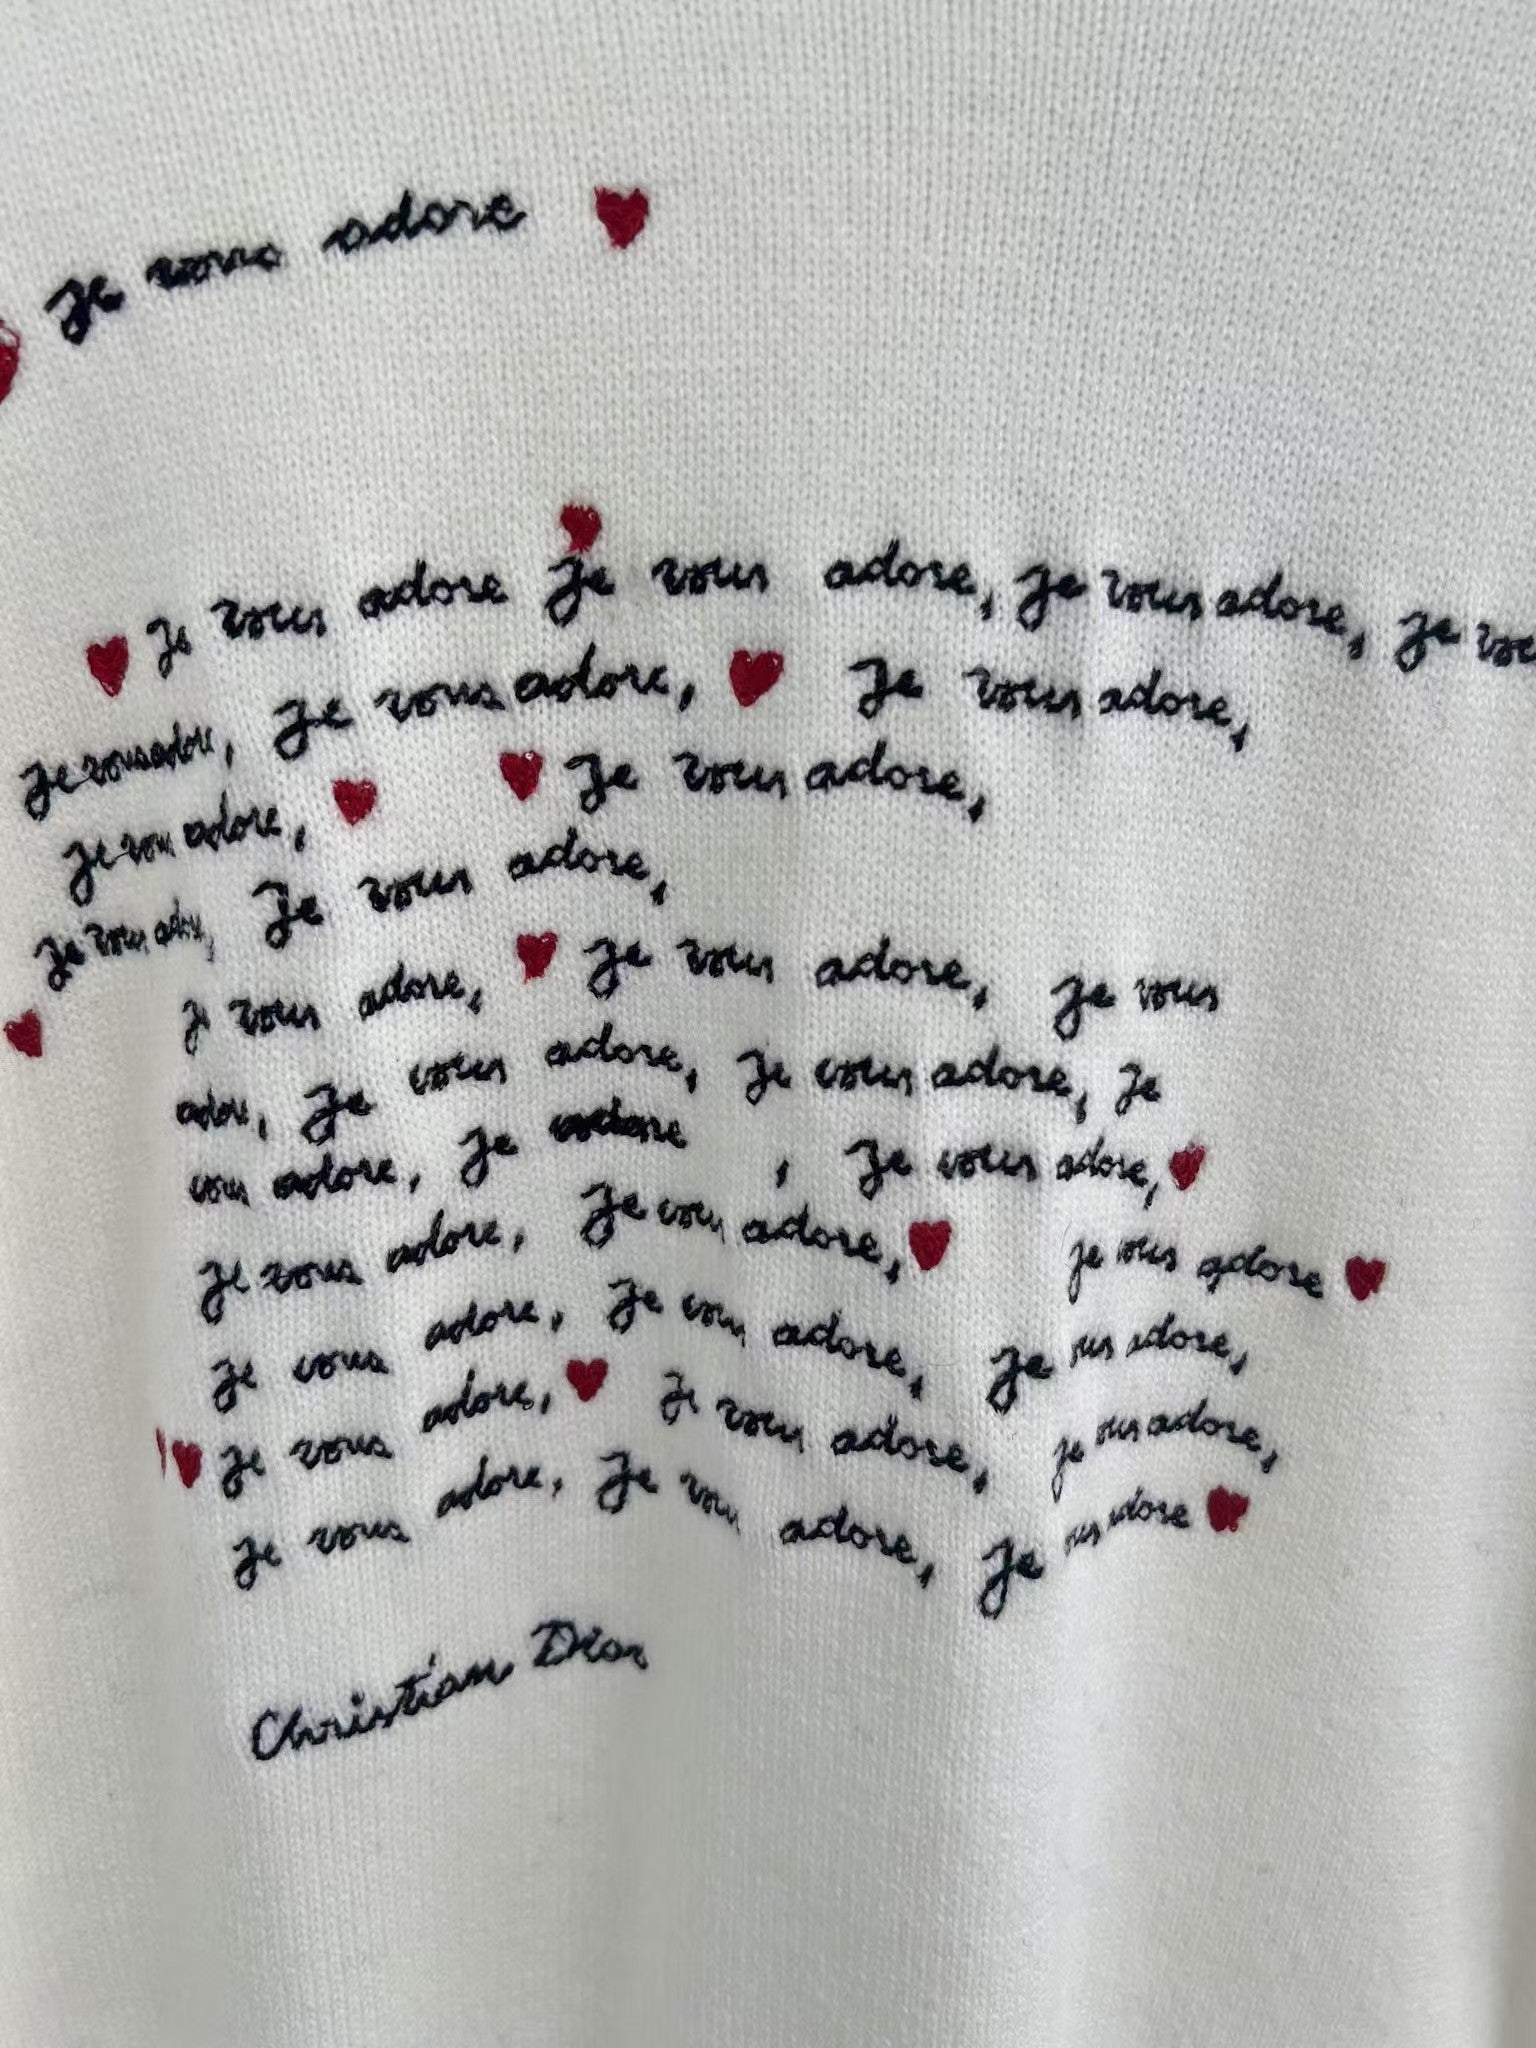 je vous adore
je vous adore je vous adore, je vous adore, je vo
je vous adore, je vous adore, je vous adore,
je vous adore, je vous adore,
je vous ado, je vous adore,
j vous adore, je vous adore, je vous
ador, je vous adore, je vous adore, je
vous adore, je adore , je vous adore,
je vous adore, je vou adore, je vous adore
je vous adore, je vou adore, je us adore,
je vous adore, je vous adore, je ous adore,
je vous adore, je vou adore, je us adore
Christian Dior